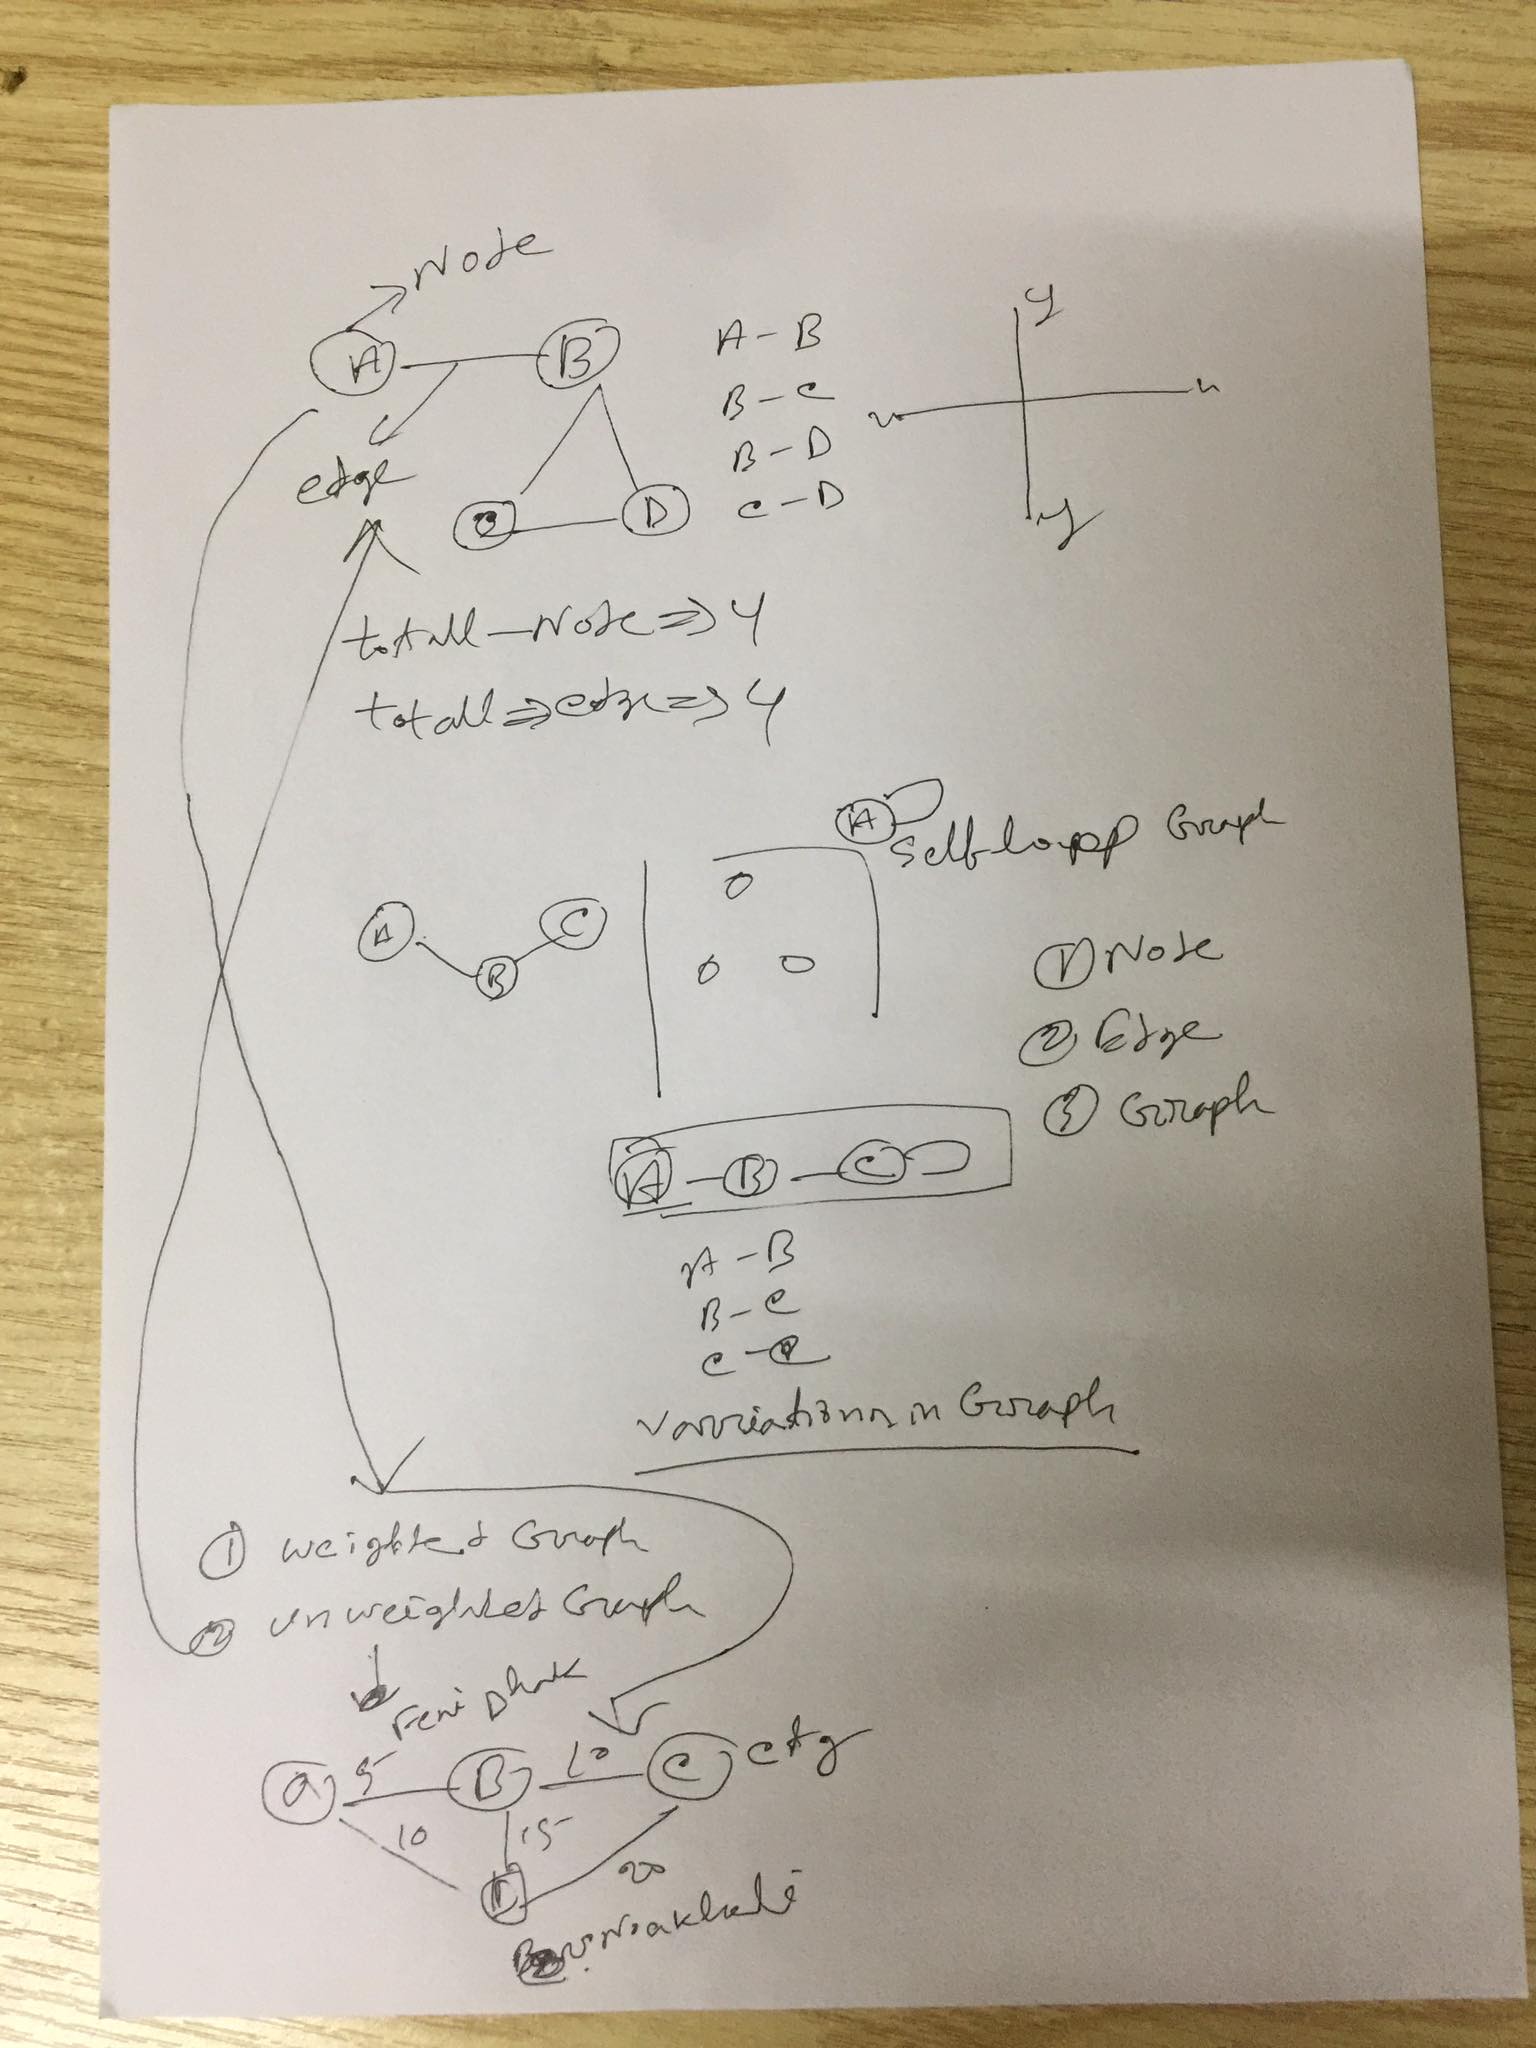 Node
A B
edge
C D
A - B
B - C
B - D
C - D
y
x x
y
totall - Node => 4
totall => edge => 4
A
Self loopp Graph
A B C
① Node
② Edge
③ Graph
A - B - C
A - B
B - C
C - C
Varriations in Graph
① weighted Graph
② unweighted Graph
Feni
a 5 B 10 C ctg
10 15 20
D
Noakhali